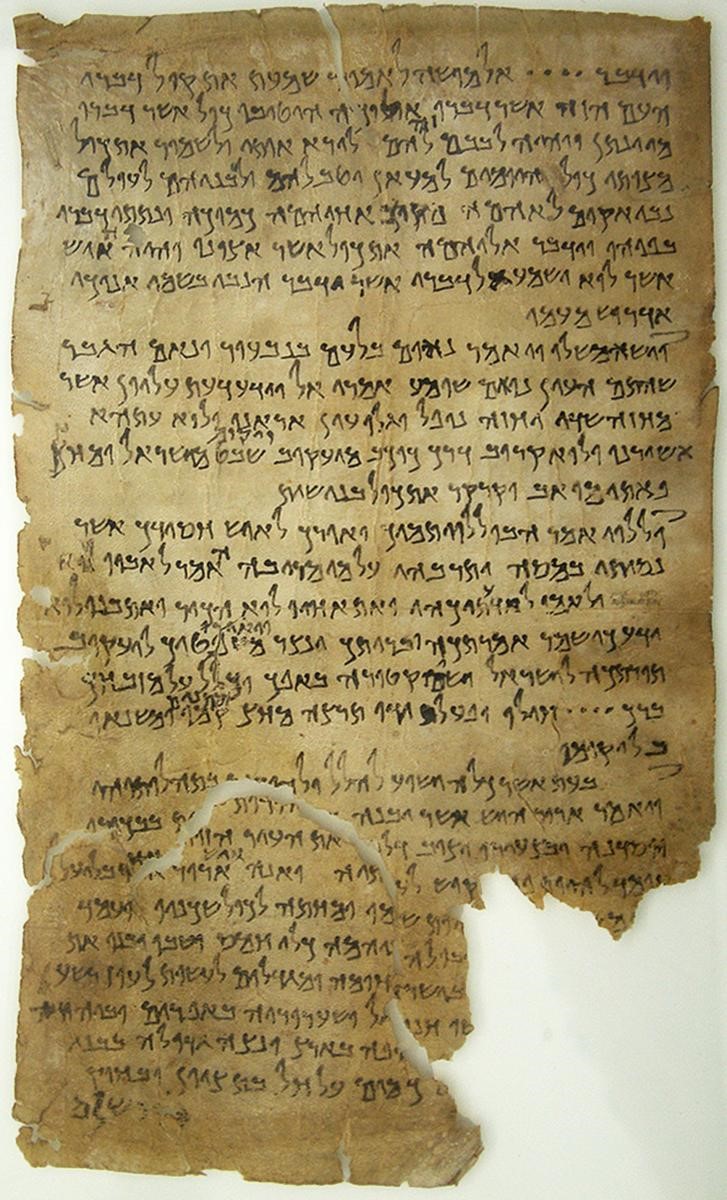 וידבר •••• אל מושה לאמור שמעת את קול דברי
העם הזה אשר דברו אליכה היטיבו כול אשר דברו
מי ינתן ויהיה לבבם זה להם לירא אותי ולשמור את כול
מצותי כול היומים למעאן יטב להם ולבניהם לעולם
נבי אקים לאהמה מקרב אחיהמה כמוכה ונתתי דברי
בפיהו וידבר אליהמה את כול אשר אצונו והיה האיש
אשר לוא ישמע אל דברי אשר ידבר הנבי בשמי אנוכי
אדרוש מעמו
וישא משלו ויאמר נאום בלעם בנבעור ונאם הגבר
שהתם העין נואם שומע אמרי אל וידע דעת עליון אשר
מחזה שדי יחזה נופל וגלו עין אראנו ולוא עתהא
אשורנו ולוא קרוב דרך כוכב מיעקוב ויקום שבט מישראל ומחץ
פאתי מואב וקרקר את כול בני שית
וללוי אמר הבו ללוי תמיך ואורך לאיש חסידך אשר
נסיתו במסה ותרבהו על מי מריבה האמר לאביו לוא
ולאמו לוא ידעתיכהו ואת אחיו לוא הכיר ואת בנו לוא
ידע כי שמר אמרתכה ובריתך ינצר ויאירו משפטיך ליעקוב
תורתכה לישראל ישים קטורה באפך וכליל על מזבחך
ברך •••• חילו ופעל ידו תרצה מחץ מתנים קמו ומשנאו
בל יקומו
בעת אשר כלה ישוע להלל ולהודות בתהלותיהו
ויאמר ארור היש אשר יבנה בבכורו
ייסדנה ובצעירו יציב ואנה ארור אחד בליעל
עומד להיות יקוש לעמו ומחתה לכול שכניו ועמד
שניהמה כלי חמס ושבו ובנו את
חומה ומגדלים לעשות לעוז רשע
בישראל ושערוריה באפרים וביהודה
חנופה בארץ ונצה גדולה בבני
כמים על חל בת ציון ובחוק
ירושלם